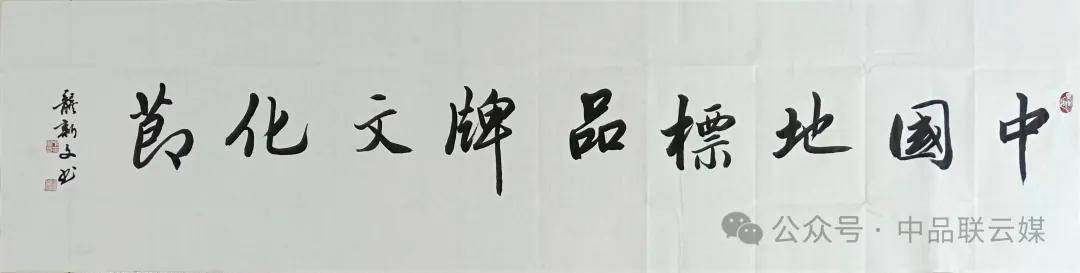 中國地標品牌文化節
龔新文书
公众号·中品联云媒